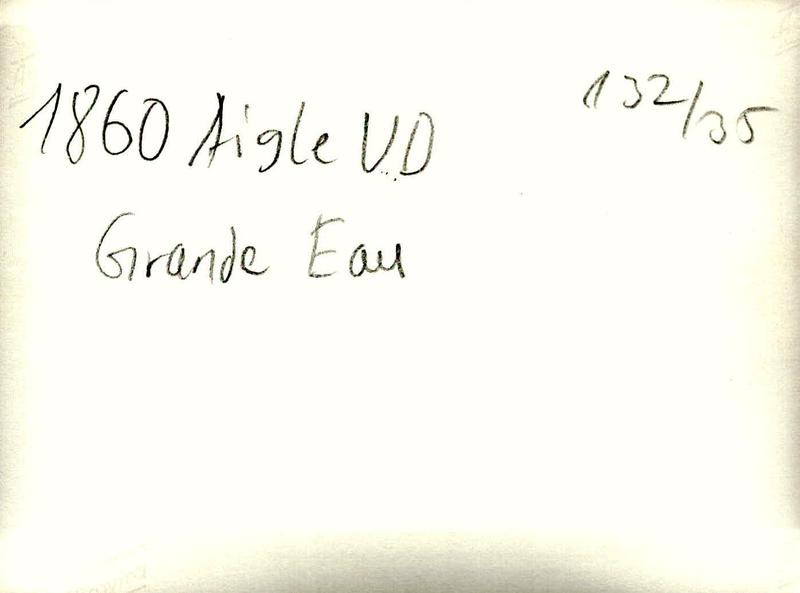 1860 Aigle VD
132/35
Grande Eau